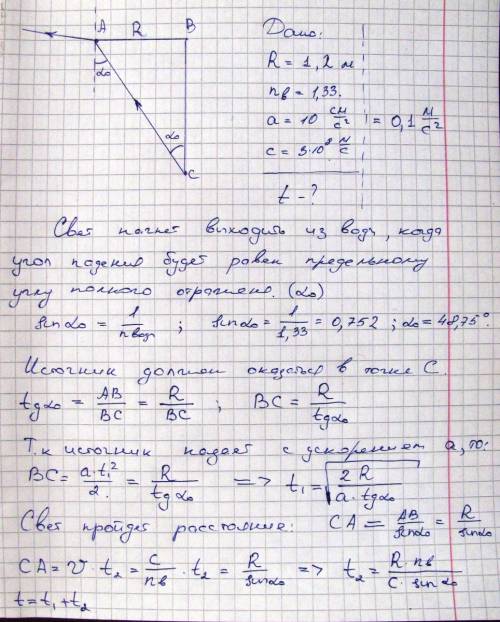 A R B
Дано:
R = 1,2 м
nв = 1,33.
a = 10 см/с² = 0,1 м/с²
c = 3·10⁸ м/с
t - ?
α₀
α₀
C
Свет начнет выходить из воды, когда
угол падения будет равен предельному
углу полного отражения. (α₀)
sinα₀ = 1/nводы ; sinα₀ = 1/1,33 = 0,752 ; α₀ = 48,75°.
Источник должен оказаться в точке C.
tgα₀ = AB/BC = R/BC ; BC = R/tgα₀
Т.к источник падает с ускорением a, то:
BC = a·t₁²/2 = R/tgα₀ => t₁ = √(2R/a·tgα₀)
Свет пройдет расстояние: CA = AB/sinα₀ = R/sinα₀
CA = v·t₂ = c/nв · t₂ = R/sinα₀ => t₂ = R·nв/c·sinα₀
t = t₁ + t₂